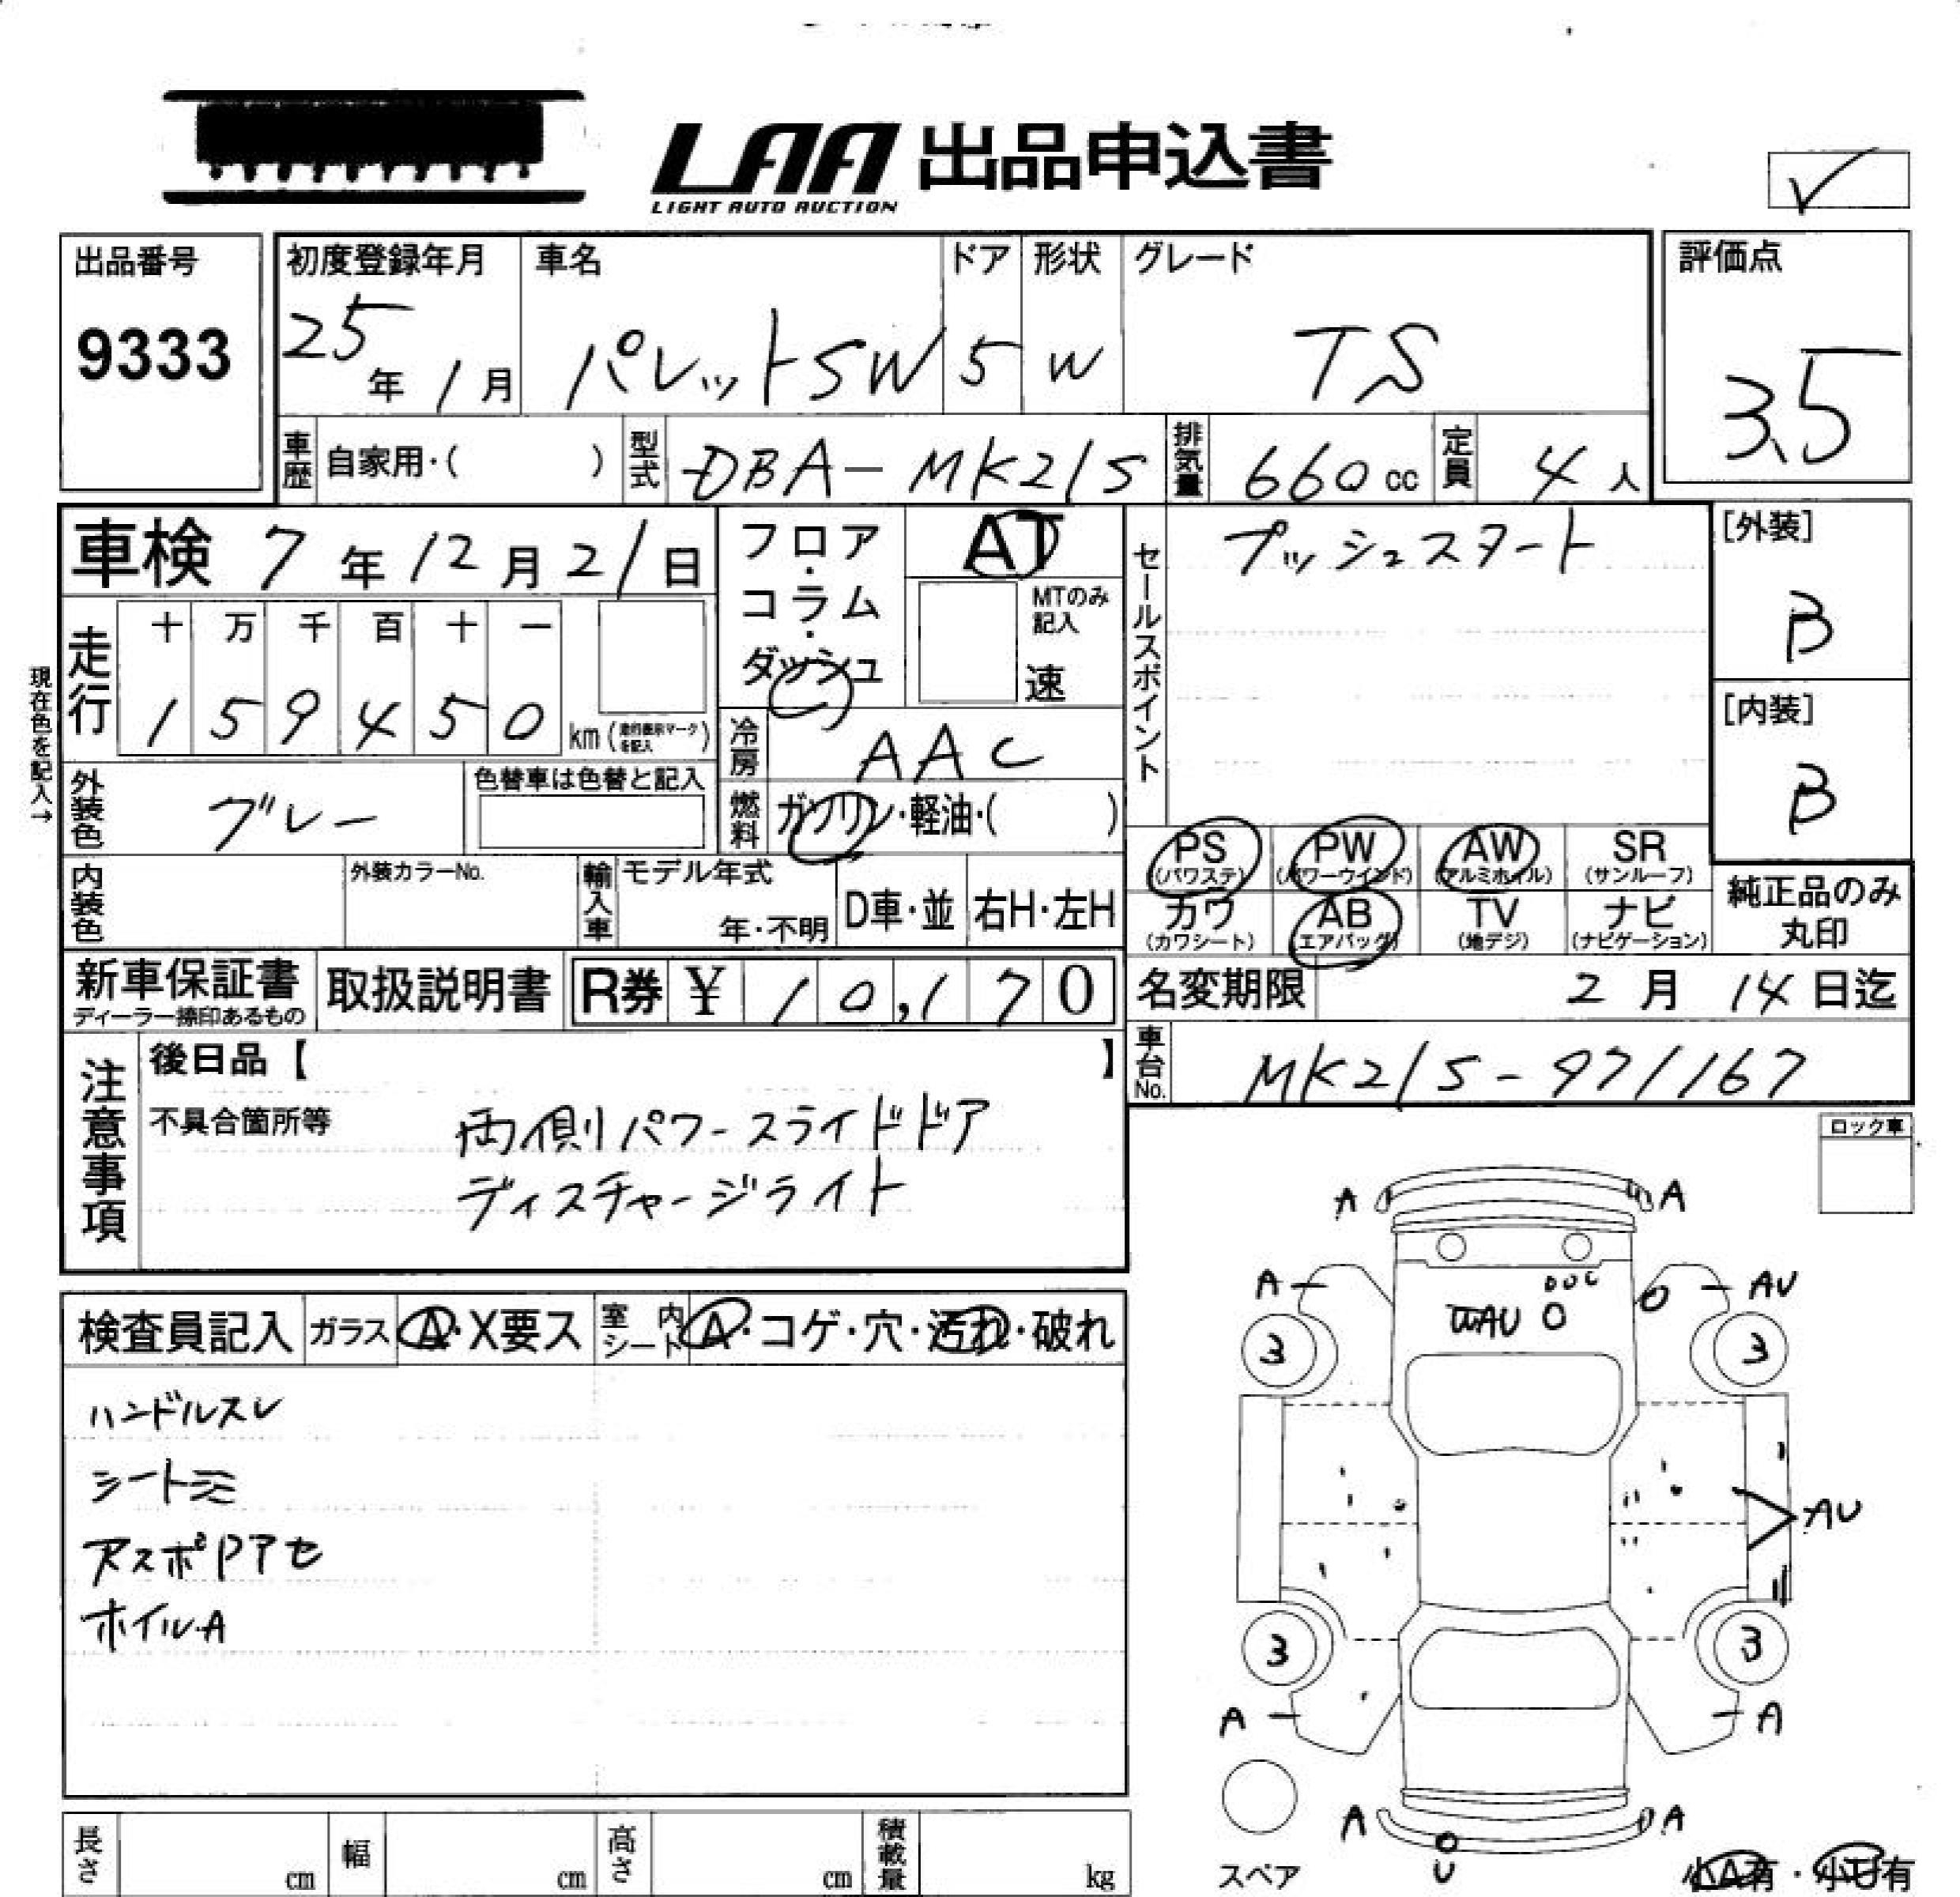 LAA 出品申込書
LIGHT AUTO AUCTION
出品番号
9333
初度登録年月
25年1月
車名
パレットSW
ドア
5
形状
W
グレード
TS
評価点
3.5
車歴 自家用・( )
型式 DBA-MK21S
排気量 660cc
定員 4人
車検 7年12月21日
フロア・コラム・ダッシュ
AT
MTのみ記入
速
セールスポイント
プッシュスタート
[外装]
B
[内装]
B
現在色を記入→
走行
十 万 千 百 十 一
1 5 9 4 5 0
km (走行表示マークを記入)
冷房 AAC
外装色 グレー
色替車は色替と記入
燃料 ガソリン・軽油・( )
PS (パワステ)
PW (パワーウインド)
AW (アルミホイル)
SR (サンルーフ)
カワ (カワシート)
AB (エアバッグ)
TV (地デジ)
ナビ (ナビゲーション)
純正品のみ丸印
内装色
外装カラーNo.
輸入車
モデル年式
年・不明
D車・並
右H・左H
新車保証書
ディーラー捺印あるもの
取扱説明書
R券 ¥ 10,170
名変期限 2月14日迄
車台No. MK21S-971167
注意事項
後日品【 】
不具合箇所等
両側パワースライドドア
ディスチャージライト
ロック車
検査員記入
ガラス A・X要ス
室内シート A・コゲ・穴・汚れ・破れ
ハンドルスレ
シートミ
アスポPアセ
ホイルA
A A
A AU
AU
3 3
AU
3 3
A A
A A
U
スペア
小A有・小U有
長さ cm
幅 cm
高さ cm
積載量 kg